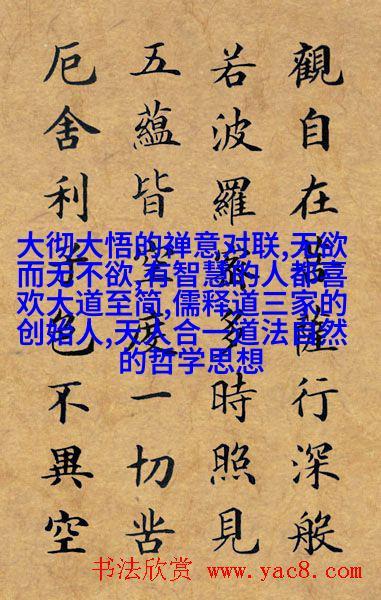 觀自在菩薩行深般
若波羅蜜多時照見
五蘊皆空度一切苦
厄舍利子色不異空
大彻大悟的禅意对联,无欲
而无不欲,有智慧的人都喜
欢大道至简,儒释道三家的
创始人,天人合一道法自然
的哲学思想
书法欣赏 www.yac8.com